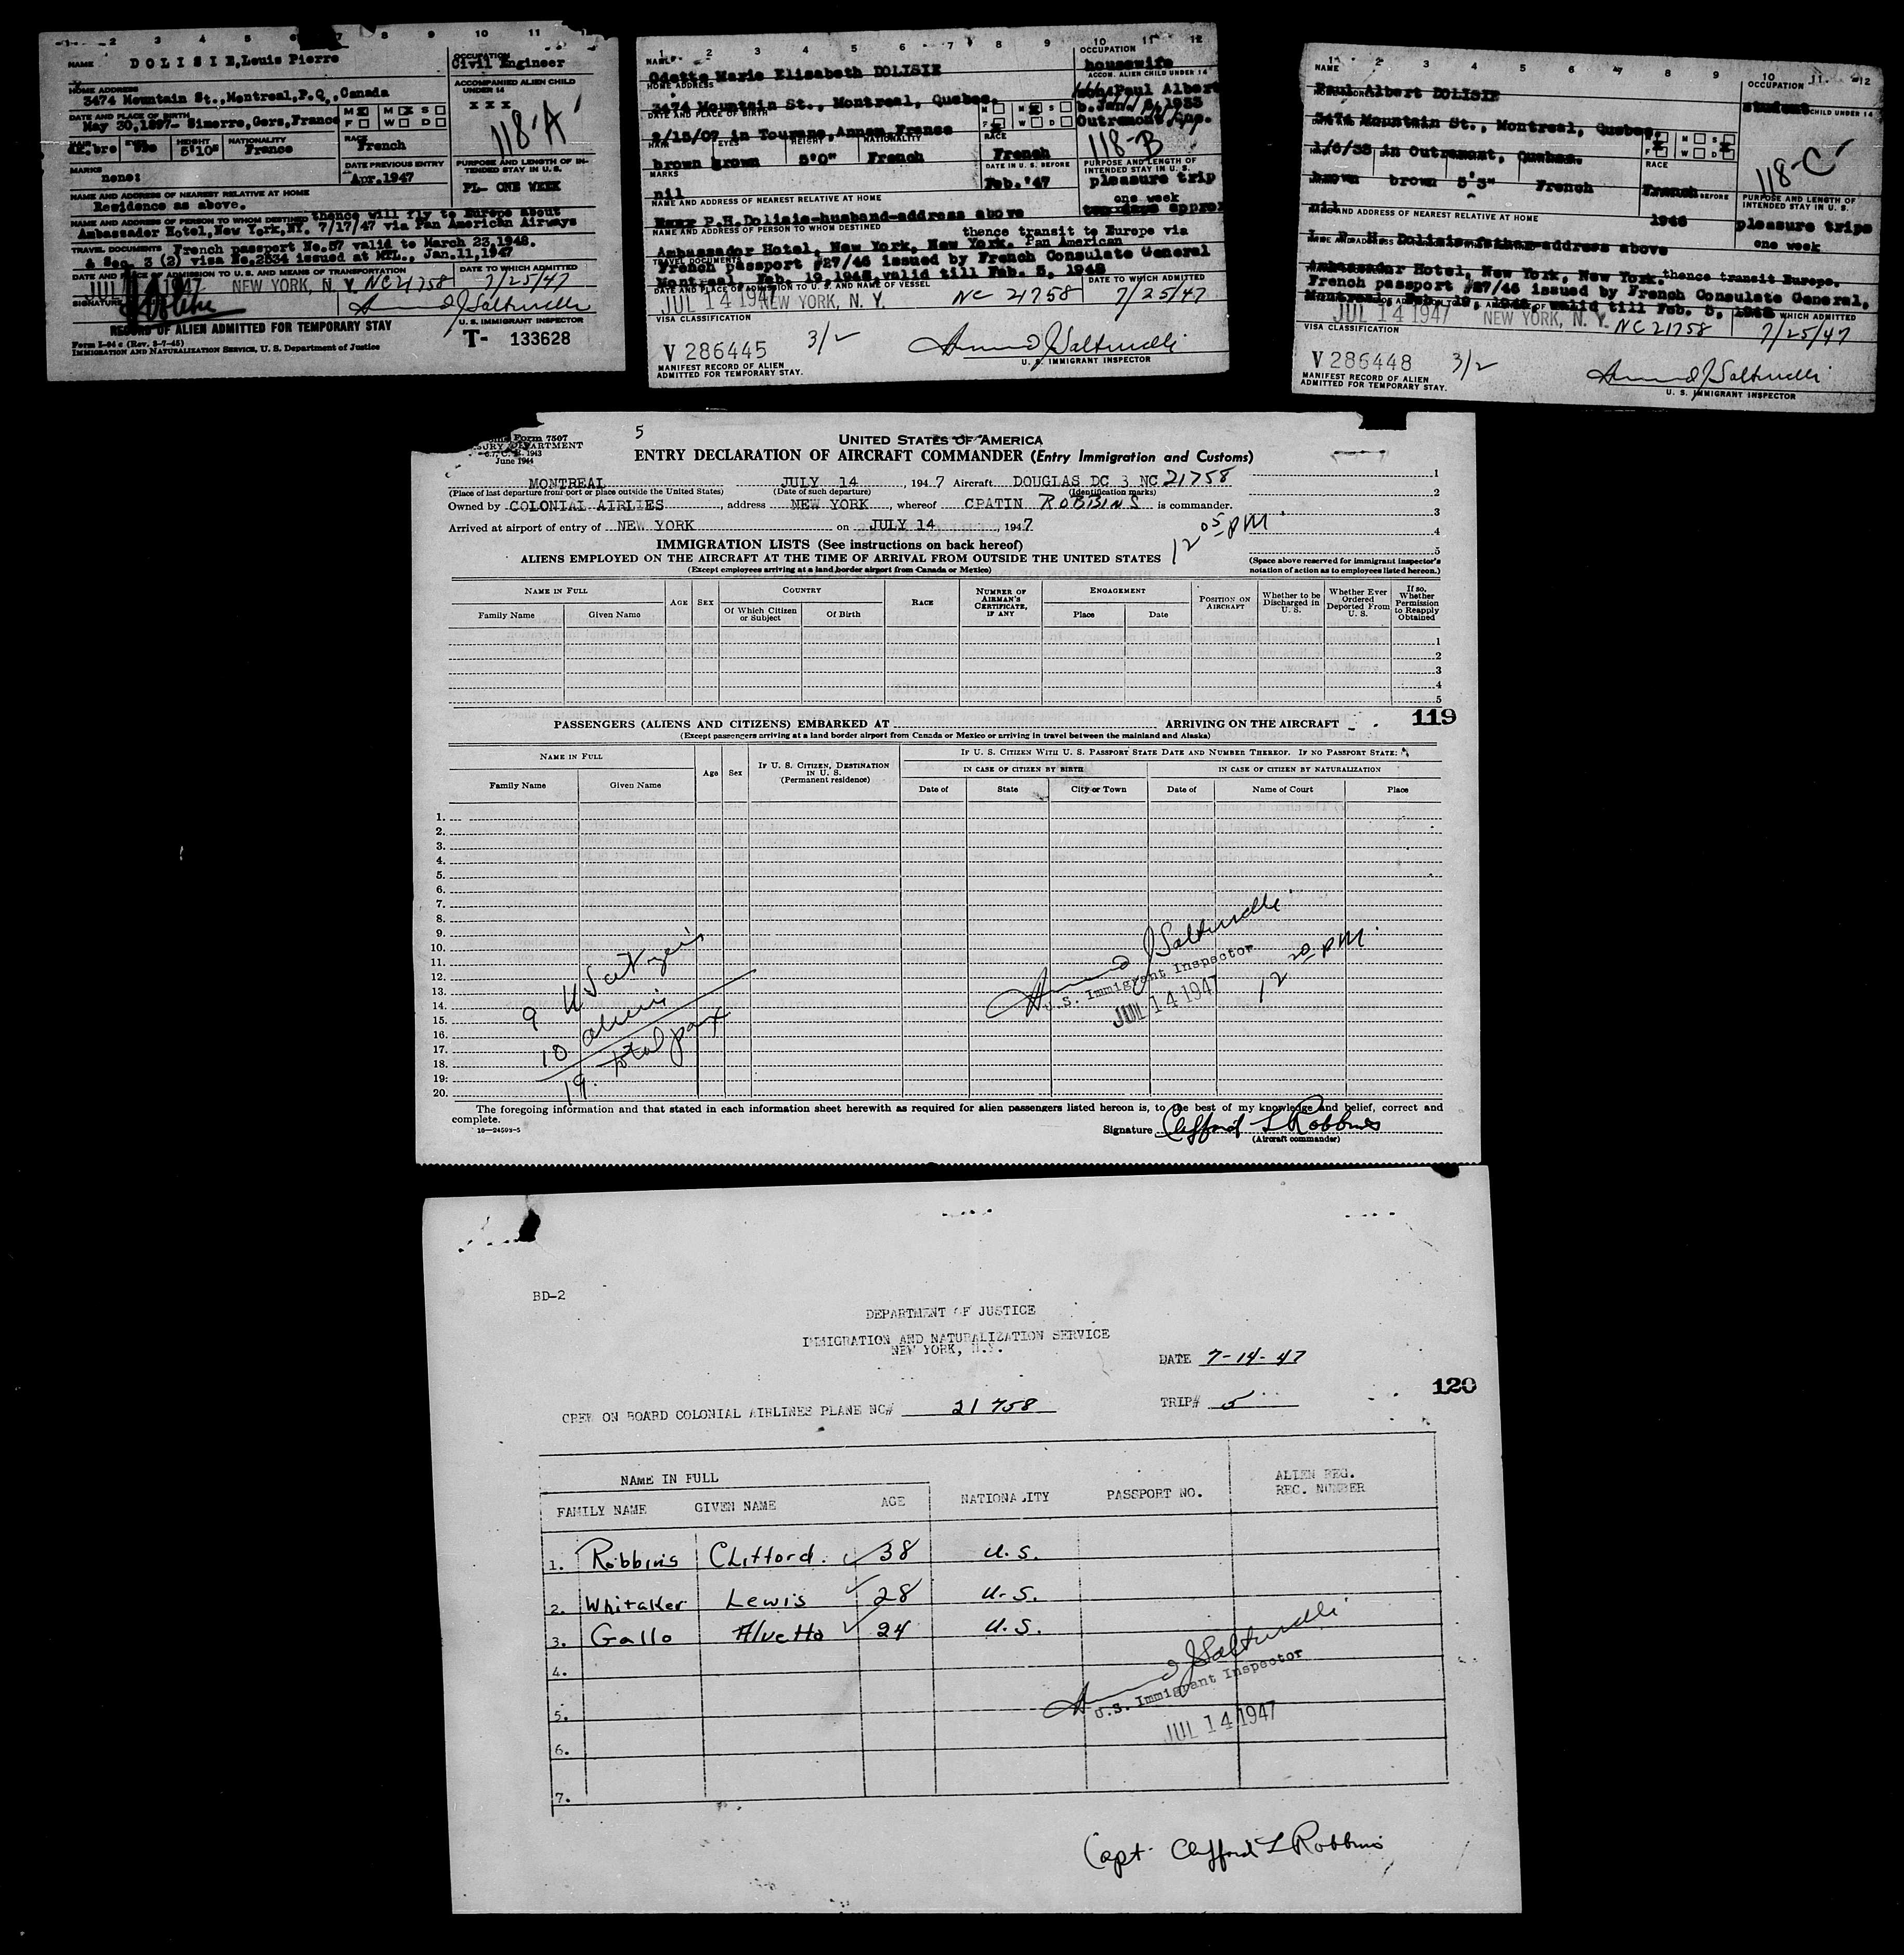 1 2 3 4 5 6 7 8 9 10 11
NAME DOLISIE, Louis Pierre
OCCUPATION Civil Engineer
HOME ADDRESS
3474 Mountain St., Montreal, P.Q., Canada
ACCOMPANIED ALIEN CHILD UNDER 14
X X X
118-A
DATE AND PLACE OF BIRTH
May 30, 1897- Simorre, Gers, France
M F M S W D
HEIGHT 5'10" NATIONALITY France
RACE French
MARKS none:
DATE PREVIOUS ENTRY Apr. 1947
PURPOSE AND LENGTH OF INTENDED STAY IN U.S.
PL- ONE WEEK
NAME AND ADDRESS OF NEAREST RELATIVE AT HOME
Residence as above.
NAME AND ADDRESS OF PERSON TO WHOM DESTINED thence will fly to Europe about
Ambassador Hotel, New York, NY. 7/17/47 via Pan American Airways
TRAVEL DOCUMENTS French passport No.57 valid to March 23, 1948.
& Sec. 3 (2) visa No.2534 issued at MTL., Jan.11, 1947
DATE AND PLACE OF ADMISSION TO U.S. AND MEANS OF TRANSPORTATION
1947 NEW YORK, N. Y. NC21758
DATE TO WHICH ADMITTED
7/25/47
SIGNATURE
RECORD OF ALIEN ADMITTED FOR TEMPORARY STAY
U. S. IMMIGRANT INSPECTOR
Form I-94 c (Rev. 3-7-45)
IMMIGRATION AND NATURALIZATION SERVICE, U. S. Department of Justice
T- 133628
1 2 3 4 5 6 7 8 9 10 11 12
NAME
Odette Marie Elisabeth DOLISIE
OCCUPATION
housewife
HOME ADDRESS
ACCOM. ALIEN CHILD UNDER 14
3474 Mountain St., Montreal, Quebec.
Paul Albert
b. Jan. 1933
Outremont, Que.
DATE AND PLACE OF BIRTH
in Tourane, Annam France
M F M S W D
118-B
HAIR EYES HEIGHT NATIONALITY RACE
brown brown 5'0" French French
MARKS
nil
DATE IN U.S. BEFORE
Feb. '47
PURPOSE AND LENGTH OF INTENDED STAY IN U. S.
pleasure trip
one week
NAME AND ADDRESS OF NEAREST RELATIVE AT HOME
P.H.Dolisie-husband-address above
NAME AND ADDRESS OF PERSON TO WHOM DESTINED thence transit to Europe via
Ambassador Hotel, New York, New York. Pan American
TRAVEL DOCUMENTS
French passport #27/46 issued by French Consulate General
Montreal, Feb. 19, 1946, valid till Feb. 5, 1948
DATE AND PLACE OF ADMISSION TO U. S. AND NAME OF VESSEL
DATE TO WHICH ADMITTED
JUL 14 1947 NEW YORK, N. Y. NC 21758 7/25/47
VISA CLASSIFICATION
3/2
V 286445
U. S. IMMIGRANT INSPECTOR
MANIFEST RECORD OF ALIEN
ADMITTED FOR TEMPORARY STAY.
1 2 3 4 5 6 7 8 9 10 11 12
NAME
Paul Albert DOLISIE
OCCUPATION
student
CHILD UNDER 14
3474 Mountain St., Montreal, Quebec.
M S F W D
118-C
1/6/33 in Outremont, Quebec.
RACE
brown brown 5'3" French French
BEFORE
1946
PURPOSE AND LENGTH OF INTENDED STAY IN U. S.
pleasure trips
one week
nil
AND ADDRESS OF NEAREST RELATIVE AT HOME
Dolisie-father-address above
Ambassador Hotel, New York, New York. thence transit Europe.
French passport #27/46 issued by French Consulate General,
Montreal, Feb. 19, 1946, valid till Feb. 5, 1948
WHICH ADMITTED
JUL 14 1947 NEW YORK, N. Y. NC21758 7/25/47
VISA CLASSIFICATION
V 286448 3/2
MANIFEST RECORD OF ALIEN
ADMITTED FOR TEMPORARY STAY.
U. S. IMMIGRANT INSPECTOR
Form 7507
DEPARTMENT
1943
June 1944
5
UNITED STATES OF AMERICA
ENTRY DECLARATION OF AIRCRAFT COMMANDER (Entry Immigration and Customs)
MONTREAL JULY 14, 1947 Aircraft DOUGLAS DC 3 NC 21758
(Place of last departure from port or place outside the United States) (Date of such departure) (Identification marks)
Owned by COLONIAL AIRLIES, address NEW YORK, whereof CPATIN ROBBINS is commander.
Arrived at airport of entry of NEW YORK on JULY 14, 1947
12 05 PM
1
2
3
4
5
(Space above reserved for immigrant inspector's notation of action as to employees listed hereon.)
IMMIGRATION LISTS (See instructions on back hereof)
ALIENS EMPLOYED ON THE AIRCRAFT AT THE TIME OF ARRIVAL FROM OUTSIDE THE UNITED STATES
(Except employees arriving at a land border airport from Canada or Mexico)
NAME IN FULL
Family Name Given Name
AGE SEX
COUNTRY
Of Which Citizen or Subject Of Birth
RACE
NUMBER OF AIRMAN'S CERTIFICATE, IF ANY
ENGAGEMENT
Place Date
POSITION ON AIRCRAFT
Whether to be Discharged in U. S.
Whether Ever Ordered Deported From U. S.
If so, Whether Permission to Reapply Obtained
1
2
3
4
5
PASSENGERS (ALIENS AND CITIZENS) EMBARKED AT ARRIVING ON THE AIRCRAFT
119
(Except passengers arriving at a land border airport from Canada or Mexico or arriving in travel between the mainland and Alaska)
NAME IN FULL
Family Name Given Name
Age Sex
IF U. S. CITIZEN, DESTINATION IN U. S.
(Permanent residence)
IF U. S. CITIZEN WITH U. S. PASSPORT STATE DATE AND NUMBER THEREOF. IF NO PASSPORT STATE:
IN CASE OF CITIZEN BY BIRTH IN CASE OF CITIZEN BY NATURALIZATION
Date of State City or Town Date of Name of Court Place
1.
2.
3.
4.
5.
6.
7.
8.
9.
10.
11.
12.
13.
14.
15.
16.
17.
18.
19.
20.
9 U S citizens
10 aliens
19. total pax
U.S. Immigrant Inspector
JUL 14 1947
12 20 PM.
The foregoing information and that stated in each information sheet herewith as required for alien passengers listed hereon is, to the best of my knowledge and belief, correct and
complete.
16-24593-5
Signature Clifford L Robbins
(Aircraft commander)
BD-2
DEPARTMENT OF JUSTICE
IMMIGRATION AND NATURALIZATION SERVICE
NEW YORK, N.Y.
DATE 7-14-47
120
CREW ON BOARD COLONIAL AIRLINES PLANE NC# 21758
TRIP# 5
NAME IN FULL
FAMILY NAME GIVEN NAME AGE NATIONALITY PASSPORT NO. ALIEN REG. REC. NUMBER
1. Robbins Clifford. 38 U.S.
2. Whitaker Lewis 28 U.S.
3. Gallo 24 U.S.
4.
5.
6.
7.
U.S. Immigrant Inspector
JUL 14 1947
Capt. Clifford L Robbins